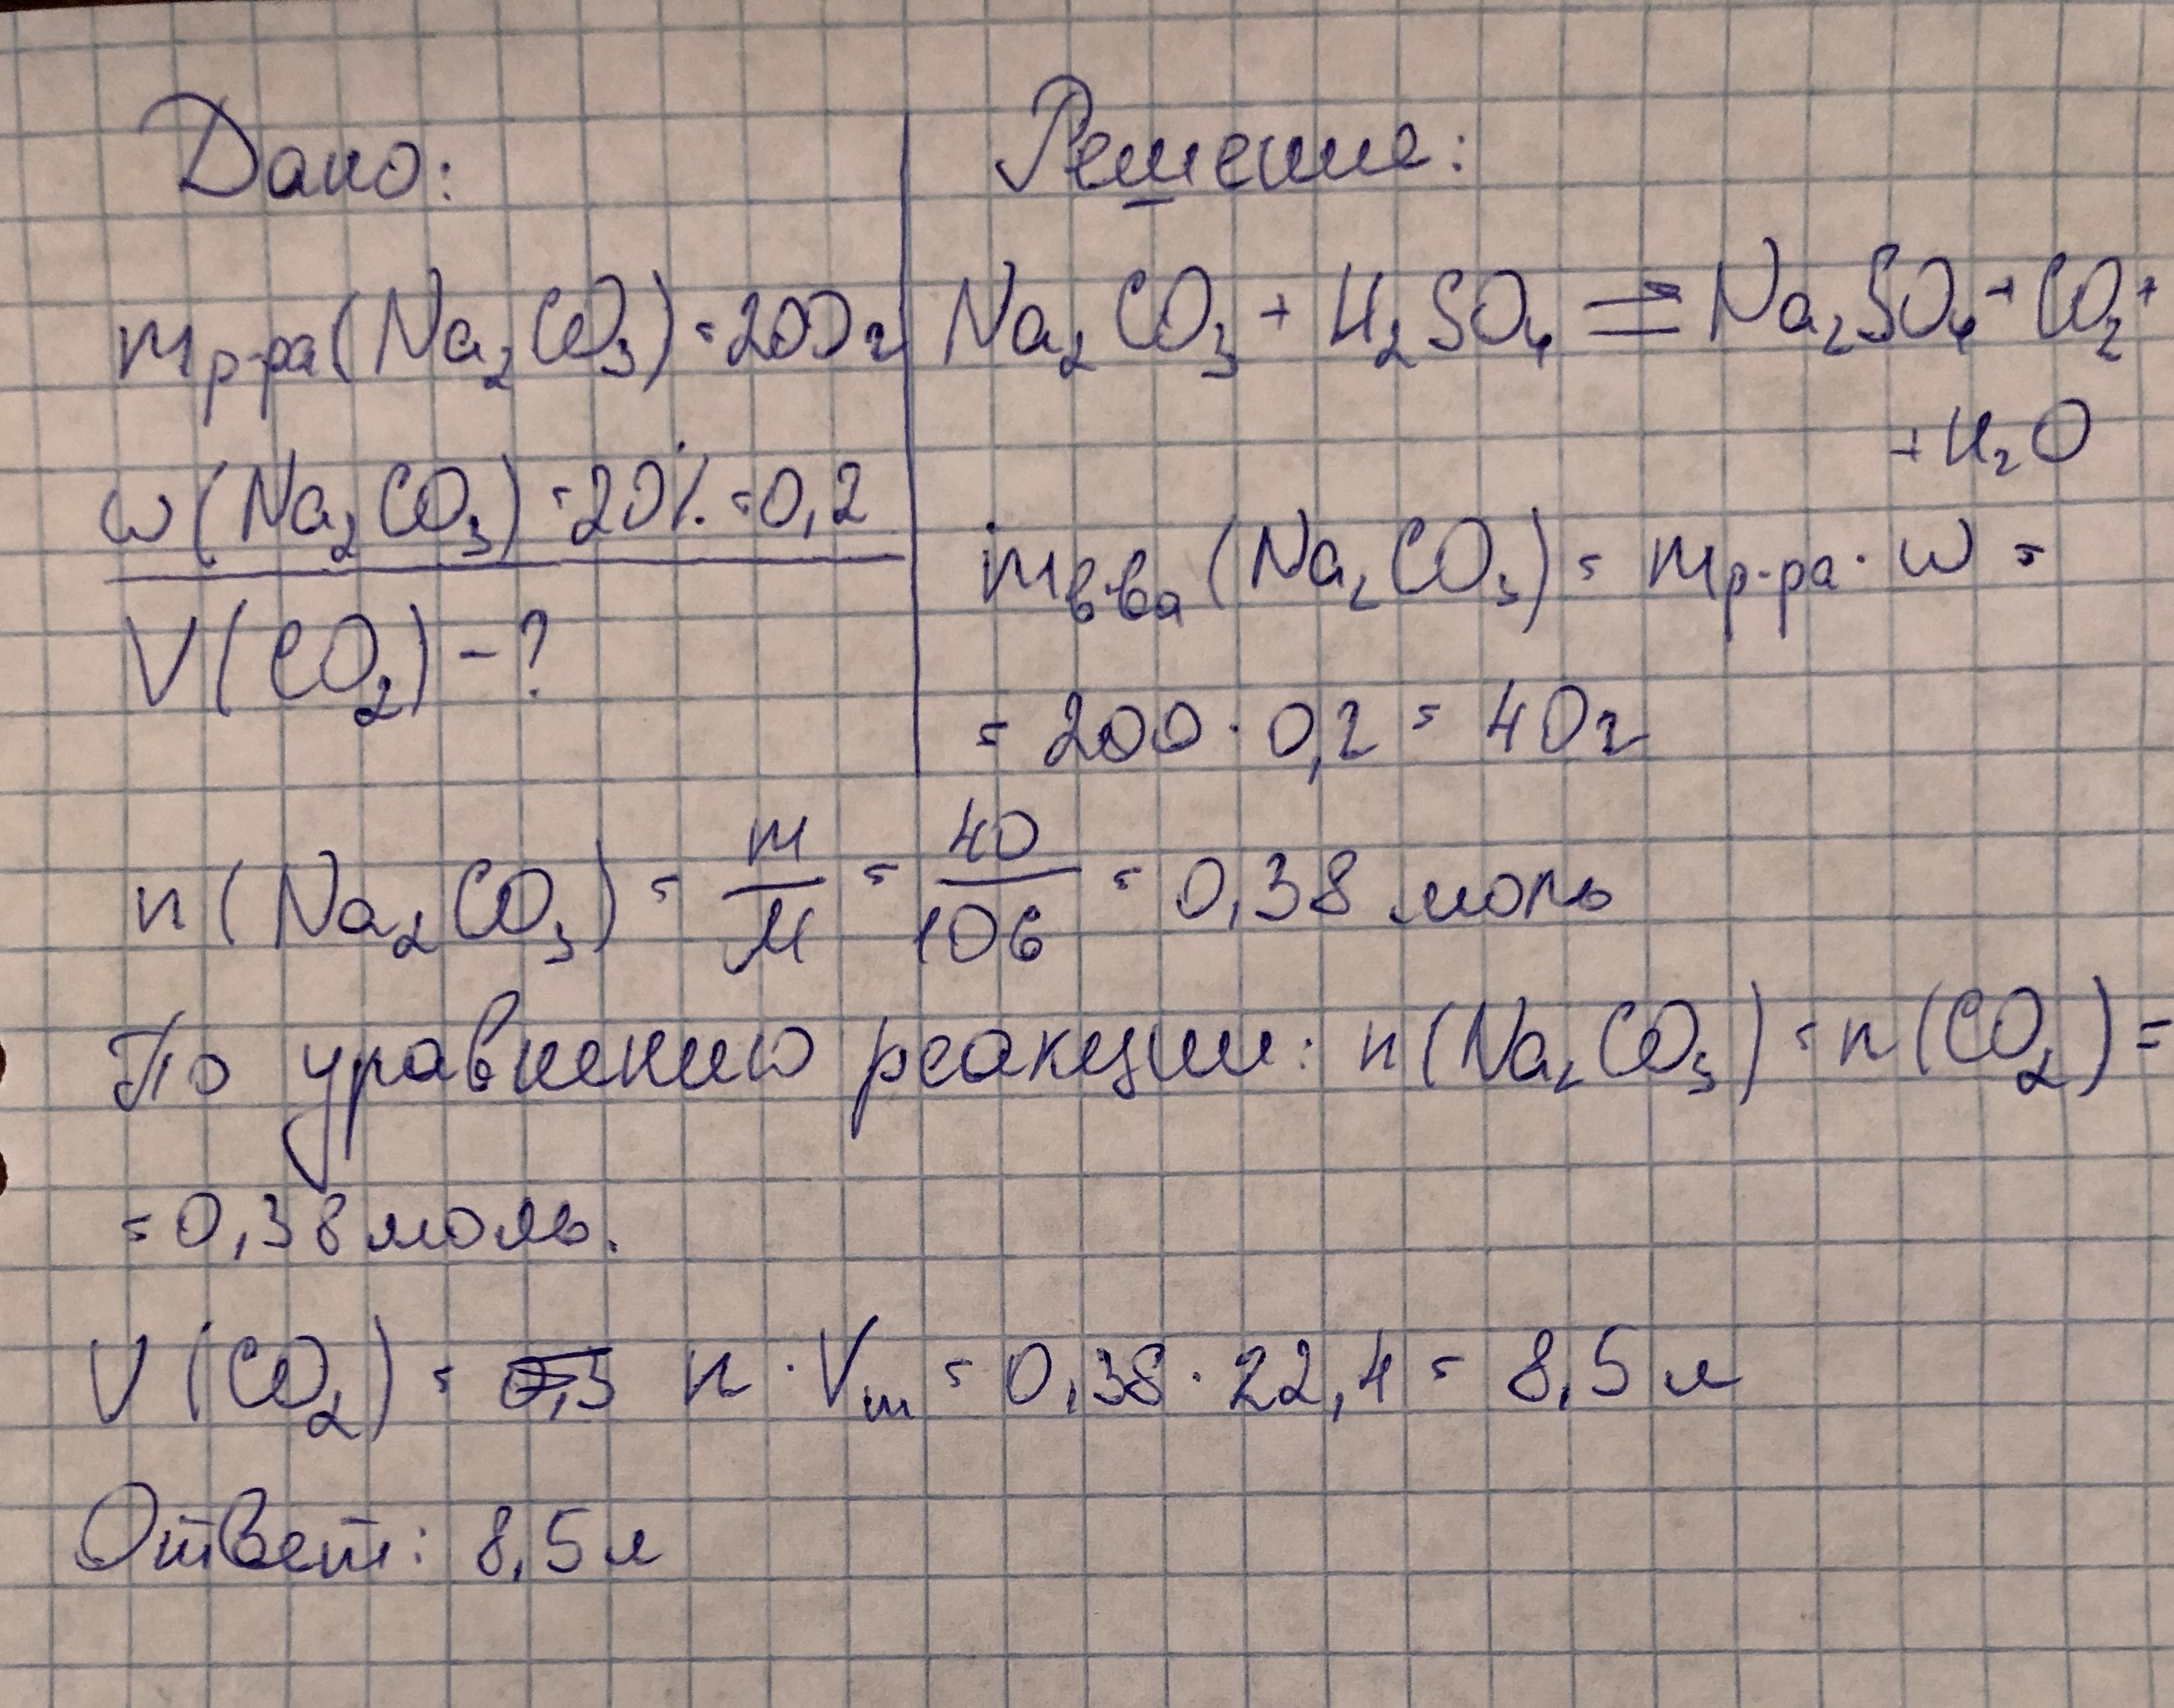 Дано:
mр-ра(Na₂CO₃)=200г
w(Na₂CO₃)=20%=0,2
V(CO₂)-?
Решение:
Na₂CO₃+H₂SO₄=Na₂SO₄+CO₂+
+H₂O
mв-ва(Na₂CO₃)=mр-ра·w=
=200·0,2=40г
n(Na₂CO₃)=m/M=40/106=0,38 моль
По уравнению реакции: n(Na₂CO₃)=n(CO₂)=
=0,38 моль.
V(CO₂)= n·Vm=0,38·22,4=8,5 л
Ответ: 8,5 л